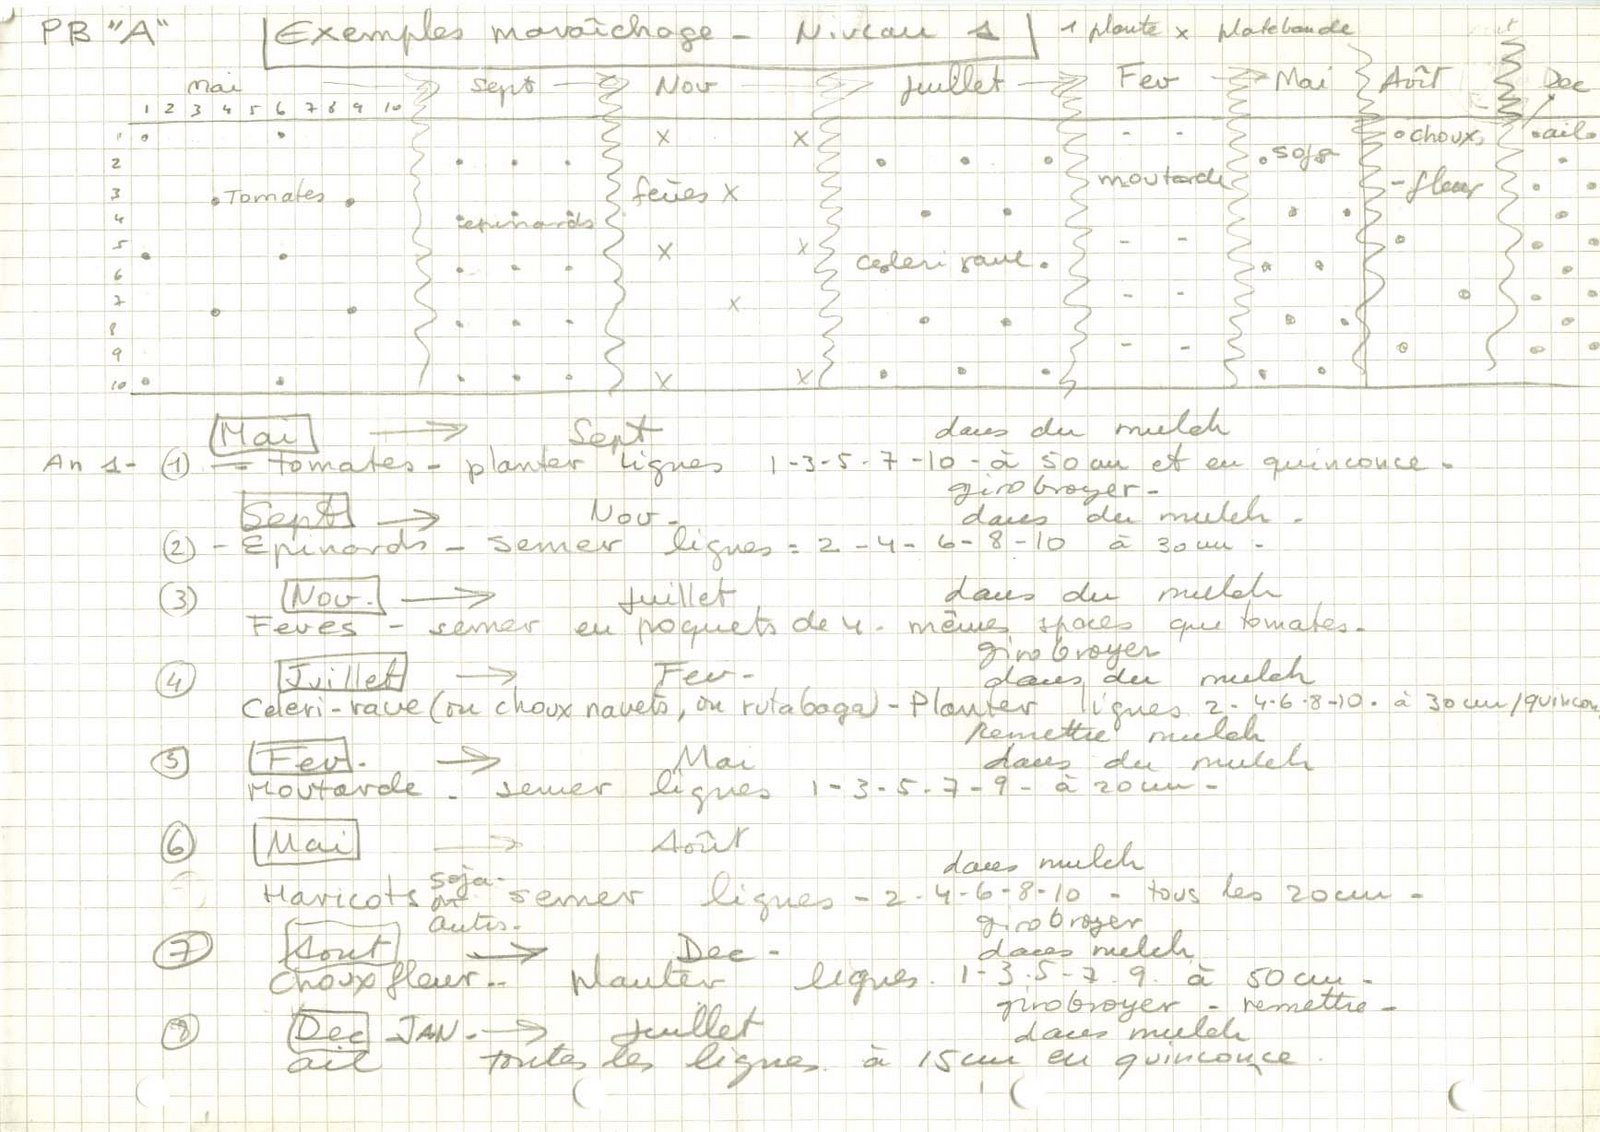 PB "A" Exemples maraîchage - Niveau 1 1 plante x platebande
Mai Sept Nov Juillet Fev Mai Août Dec
1 2 3 4 5 6 7 8 9 10
1 choux ail
2 soja
3 Tomates fèves moutarde -fleur
4 epinards
5
6 celeri rave
7
8
9
10
Mai Sept dans du mulch
An 1- 1 - Tomates - planter lignes 1-3-5-7-10 - à 50 cm et en quinconce -
girobroyer -
Sept Nov - dans du mulch -
2 - Epinards - semer lignes = 2-4-6-8-10 à 30 cm -
3 Nov. Juillet dans du mulch
Feves - semer en poquets de 4 - mêmes spaces que tomates -
girobroyer
4 Juillet Fev - dans du mulch
Celeri-rave (ou choux navets, ou rutabaga) - Planter lignes 2-4-6-8-10 - à 30 cm/quincon
Remettre mulch
5 Fev. Mai dans du mulch
Moutarde - semer lignes 1-3-5-7-9 - à 20 cm -
6 Mai Août
dans mulch
soja -
Haricots ou semer lignes - 2-4-6-8-10 - tous les 20 cm -
autres - girobroyer
7 Aout Dec - dans mulch
Choux fleur - planter lignes 1-3-5-7-9 à 50 cm -
girobroyer - remettre -
8 Dec JAN - Juillet dans mulch
ail toutes les lignes à 15 cm en quinconce